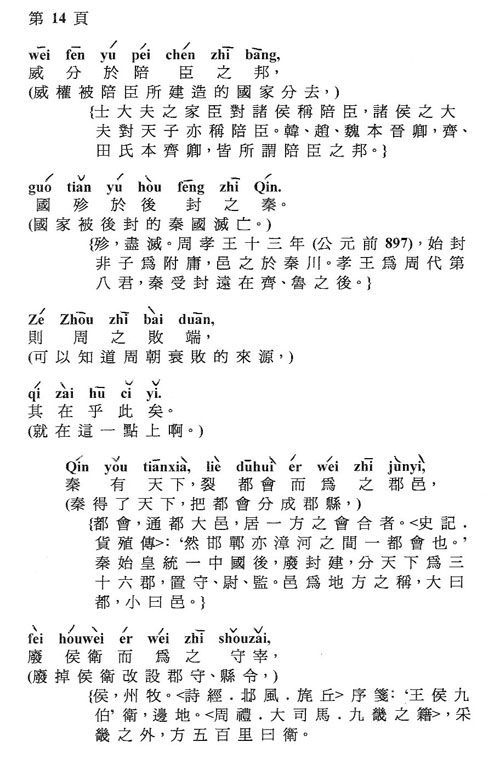 第 14 頁
wēi fēn yú péi chén zhī bāng,
威 分 於 陪 臣 之 邦，
(威權被陪臣所建造的國家分去，)
{士大夫之家臣對諸侯稱陪臣，諸侯之大
夫對天子亦稱陪臣。韓、趙、魏本晉卿，齊、
田氏本齊卿，皆所謂陪臣之邦。}
guó tiǎn yú hòu fēng zhī Qín.
國 殄 於 後 封 之 秦。
(國家被後封的秦國滅亡。)
{殄，盡滅。周孝王十三年 (公元前 897)，始封
非子爲附庸，邑之於秦川。孝王爲周代第
八君，秦受封遠在齊、魯之後。}
Zé Zhōu zhī bài duān,
則 周 之 敗 端，
(可以知道周朝衰敗的來源，)
qí zài hū cǐ yǐ.
其 在 乎 此 矣。
(就在這一點上啊。)
Qín yǒu tiānxià, liè dūhuì ér wéi zhī jùnyì,
秦 有 天下，裂 都會 而 爲 之 郡邑，
(秦得了天下，把都會分成郡縣，)
{都會，通都大邑，居一方之會合者。<史記．
貨殖傳>：‘然邯鄲亦漳河之間一都會也。’
秦始皇統一中國後，廢封建，分天下爲三
十六郡，置守、尉、監。邑爲地方之稱，大曰
都，小曰邑。}
fèi hóuwèi ér wéi zhī shǒuzǎi,
廢 侯衛 而 爲 之 守宰，
(廢掉侯衛改設郡守、縣令，)
{侯，州牧。<詩經．邶風．旄丘> 序箋：‘王侯九
伯’ 衛，邊地。<周禮．大司馬．九畿之籍>，采
畿之外，方五百里曰衛。